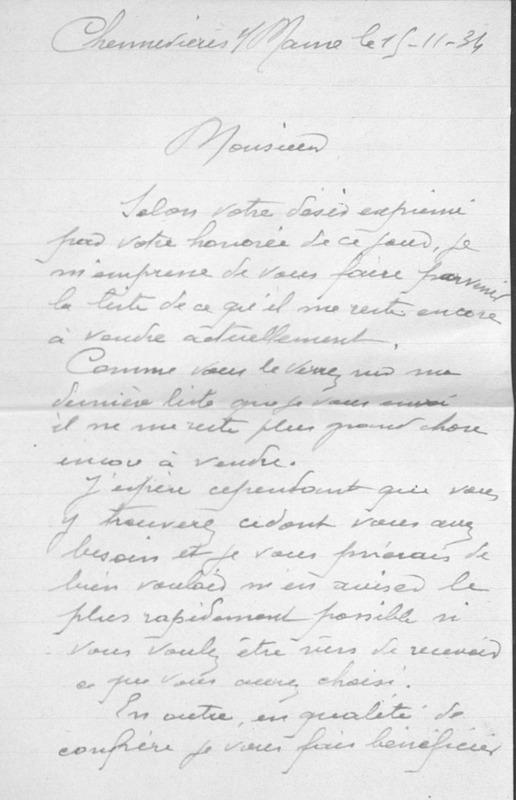 Chennevières s/ Marne le 15-11-34
Monsieur
Selon votre désir exprimé
par votre honorée de ce jour, je
m'empresse de vous faire parvenir
la liste de ce qu'il me reste encore
à vendre actuellement.
Comme vous le verrez sur ma
dernière liste que je vous envoi
il ne me reste plus grand chose
encore à vendre.
J'espère cependant que vous
y trouverez ce dont vous avez
besoin et je vous prierais de
bien vouloir m'en aviser le
plus rapidement possible si
vous voulez être sûrs de recevoir
ce que vous aurez choisi.
En outre, en qualité de
confrère je vous fais bénéficier